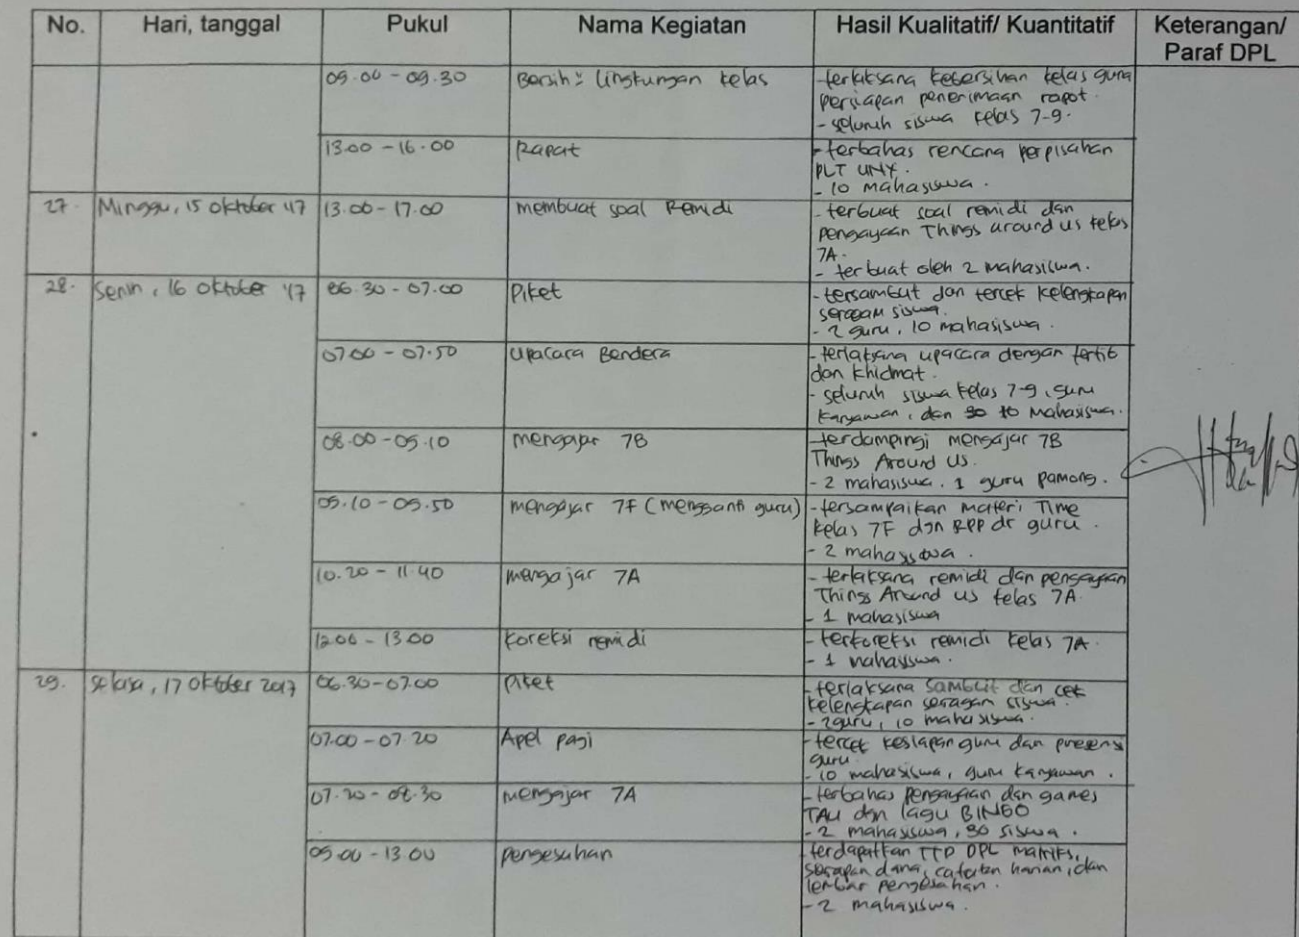 No. Hari, tanggal Pukul Nama Kegiatan Hasil Kualitatif/ Kuantitatif Keterangan/
Paraf DPL
09.00 - 09.30 Bersih² lingkungan kelas -terlaksana kebersihan kelas guna
persiapan penerimaan rapot.
- seluruh siswa kelas 7-9.
13.00 - 16.00 Rapat - terbahas rencana perpisahan
PLT UNY.
- 10 mahasiswa.
27. Minggu, 15 oktober '17 13.00 - 17.00 membuat soal Remidi - terbuat soal remidi dan
pengayaan Things around us kelas
7A.
- terbuat oleh 2 mahasiswa.
28. Senin, 16 oktober '17 06.30 - 07.00 Piket - tersambut dan tercek kelengkapan
seragam siswa.
- 2 guru, 10 mahasiswa.
07.00 - 07.50 Upacara Bendera - terlaksana upacara dengan tertib
dan khidmat.
- seluruh siswa kelas 7-9, guru
karyawan, dan 10 Mahasiswa.
08.00 - 09.10 mengajar 7B -terdampingi mengajar 7B
Things Around Us.
- 2 mahasiswa. 1 guru pamong.
09.10 - 09.50 mengajar 7F (mengganti guru) -tersampaikan materi Time
kelas 7F dgn RPP dr guru.
- 2 mahasiswa.
10.20 - 11.40 mengajar 7A - terlaksana remidi dan pengayaan
Things Around us kelas 7A.
- 1 mahasiswa
12.00 - 13.00 koreksi remidi - terkoreksi remidi kelas 7A.
- 1 mahasiswa.
29. Selasa, 17 oktober 2017 06.30-07.00 Piket - terlaksana sambut dan cek
kelengkapan seragam siswa.
- 2guru, 10 mahasiswa.
07.00 - 07.20 Apel pagi - tercek kesiapan guru dan presensi
guru.
- 10 mahasiswa, guru karyawan.
07.20 - 08.30 mengajar 7A - terbahas pengayaan dan games
TAU dgn lagu BINGO
- 2 mahasiswa, 30 siswa.
09.00 - 13.00 pengesahan - terdapatkan TTD DPL matriks,
serapan dana, catatan harian, dan
lembar pengesahan.
- 2 mahasiswa.